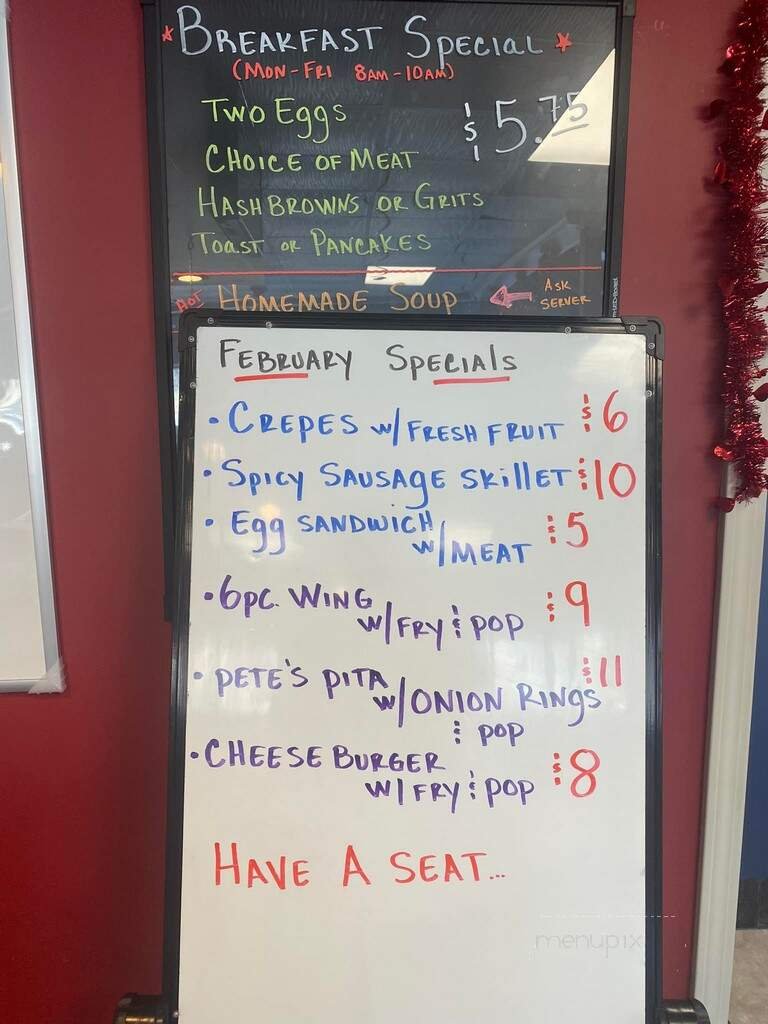 Breakfast Special
(Mon-Fri 8am-10am)
Two Eggs $5.75
Choice of Meat
Hashbrowns or Grits
Toast or Pancakes
Hot Homemade Soup Ask
Server
February Specials
• Crepes w/ Fresh Fruit $6
• Spicy Sausage Skillet $10
• Egg Sandwich $5
w/ Meat
• 6pc. Wing $9
w/ Fry & Pop
• Pete's Pita $11
w/ Onion Rings
& Pop
• Cheese Burger $8
w/ Fry & Pop
Have A Seat...
menupix